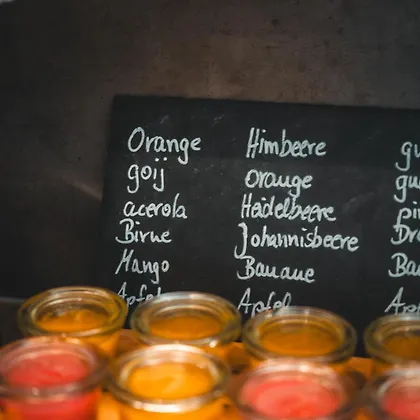 Orange
goij
acerola
Birne
Mango
Apfel
Himbeere
orange
Heidelbeere
Johannisbeere
Banane
Apfel